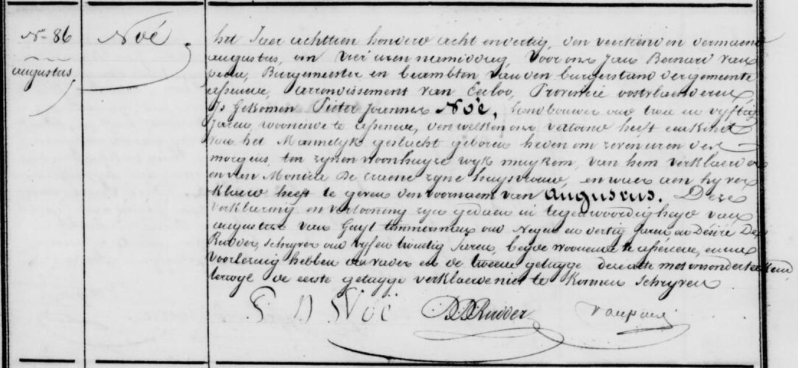 N. 86
augustus
Noé
het Jaer achttien honderd acht en dertig, den veertienden der maend
augustus, om vier uren namiddag, voor ons Jan Bernard van
Burgemeester en beambten van den burgerstand der gemeente
arrondissement van Eecloo, Provincie oostvlaenderen
Is Gekomen Pieter Joannes Noë, landbouwer oud twee en vyftig
Jaren woonende te den welken ons vertoond heeft een kind
van het Mannelyk geslacht geboren heden om zeven uren des
morgens, ten zynen woonhuyze wyk van hem verklaerder
en van De Craene zyne huysvrouw, en waer aen hy ver
klaerd heeft te geven den voornaem van Augustus. Deze
verklaring en vertooning zyn gedaen in tegenwoordigheyd van
augustus van Guyt timmerman oud Negen en dertig Jaren en Désiré De
Ridder, schryver oud vyf en twintig Jaren, beyde woonende te
voorlezing hebben de vader en de tweede getuyge deze akte met ons onderteekend
terwyl de eerste getuyge verklaerde niet te konnen schryven
P J Noë D DRidder